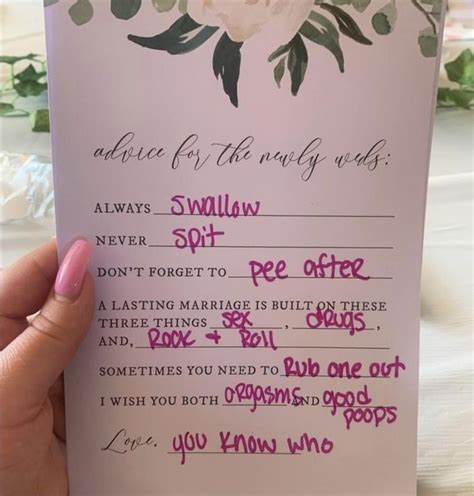 advice for the newly weds:
ALWAYS swallow
NEVER spit
DON'T FORGET TO pee after
A LASTING MARRIAGE IS BUILT ON THESE
THREE THINGS sex, drugs,
AND, Rock + Roll
SOMETIMES YOU NEED TO Rub one out
I WISH YOU BOTH orgasms AND good
poops
Love, you know who